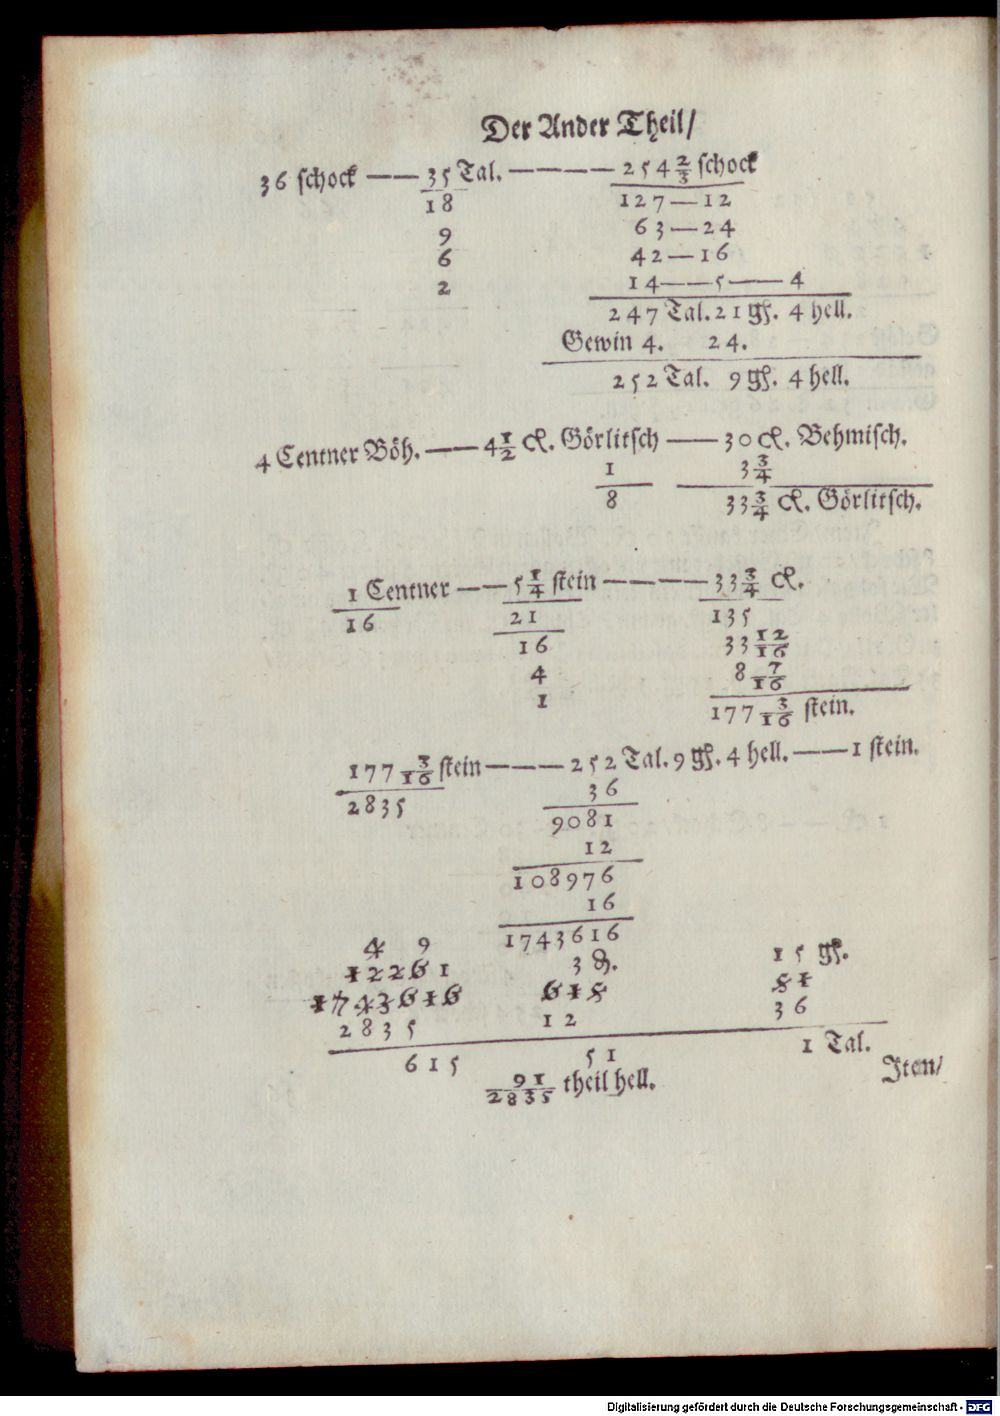 Der Ander Theil/
36 schock —— 35 Tal. ———— 254 2/3 schock
18 127—12
9 63—24
6 42—16
2 14——5——4
247 Tal. 21 gß. 4 hell.
Gewin 4. 24.
252 Tal. 9 gß. 4 hell.
4 Centner Böh. —— 4 1/2 ct. Görlitsch —— 30 ct. Behmisch.
1 3 3/4
8 33 3/4 ct. Görlitsch.
1 Centner —— 5 1/4 stein ———— 33 3/4 ct.
16 21 135
16 33 12/16
4 8 7/16
1 177 3/16 stein.
177 3/16 stein ——— 252 Tal. 9 gß. 4 hell. —— 1 stein.
2835 36
9081
12
108976
16
1743616
4 9 3 ₰. 15 gß.
12261 615 51
1743616 12 36
2835
615 51 1 Tal.
91/2835 theil hell.
Item/
Digitalisierung gefördert durch die Deutsche Forschungsgemeinschaft - DFG